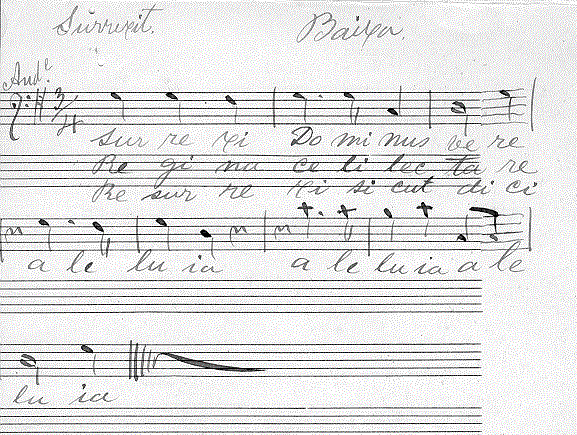 Surrexit. Baixo.
And.e
3/4
Sur re xi Do mi nus ve re
Re gi na ce li lec ta re
Re sur re xi si cut di ci
a le lu ia a le lu ia a le
lu ia